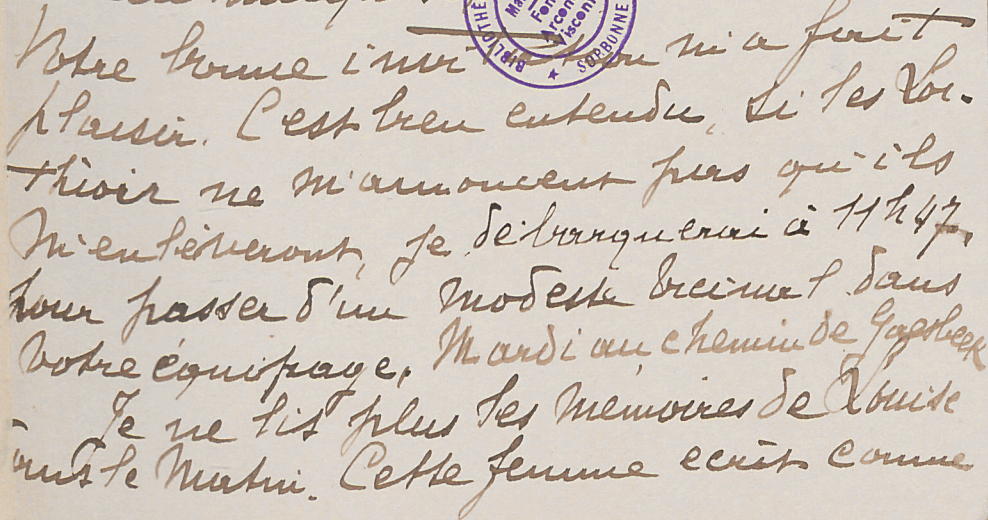 BIBLIOTHÈ SORBONNE
Fon
Arcon
Viscon
Votre bonne m'a fait
plaisir. C'est bien entendu, si les Lor-
thioir ne m'annoncent pas qu'ils
m'enlèveront, je débarquerai à 11h47,
pour passer d'un modeste vicinal dans
votre équipage. Mardi au chemin de Gaesbeek
Je ne lis plus les mémoires de Louise
le Matin. Cette femme ecrit comme